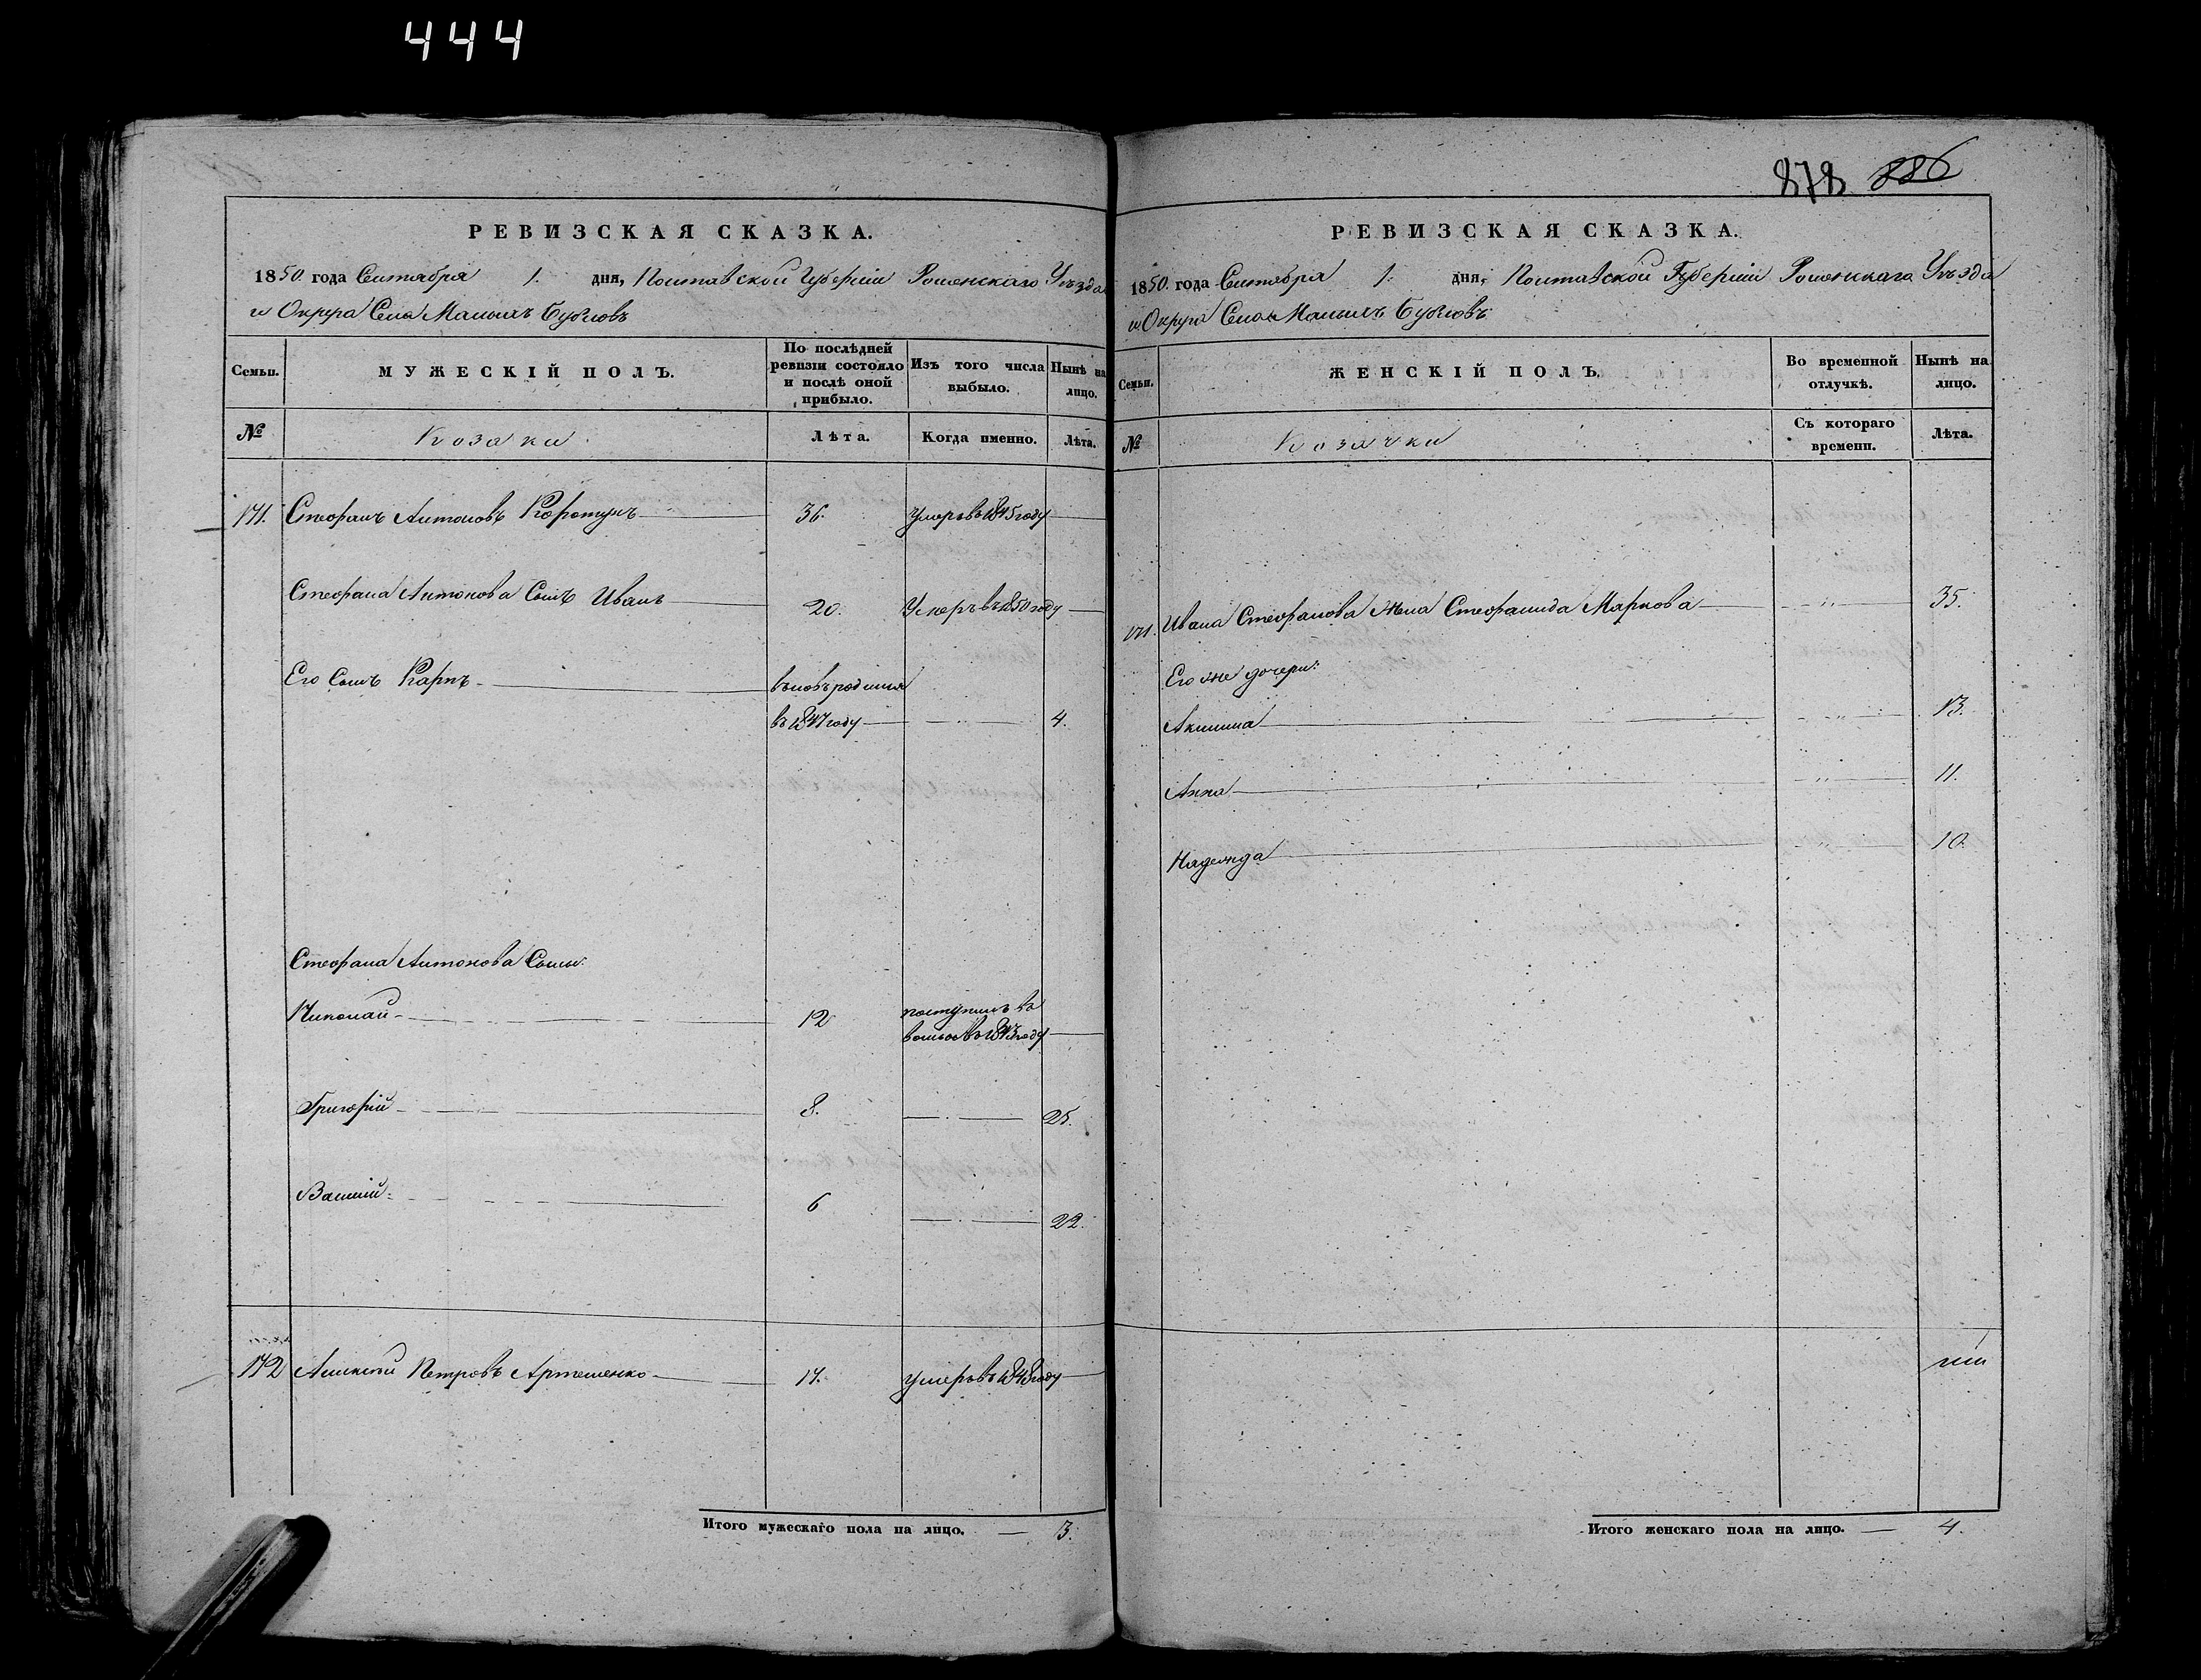 444
РЕВИЗСКАЯ СКАЗКА.
1850 года Сентября 1. дня, Полтавской Губернiи Роменскаго Уѣзда
и Округа Села Малыхъ Бубновъ
Семьи. МУЖЕСКIЙ ПОЛЪ. По послѣдней ревизiи состояло и послѣ оной прибыло. Изъ того числа выбыло. Нынѣ на лицо.
№ Козаки Лѣта. Когда именно. Лѣта.
171. Стефанъ Антоновъ Коротунъ 36. Умеръ въ 1845 году
Стефана Антонова Сынъ Иванъ 20. Умеръ въ 1850 году
Его Сынъ Карпъ вновь родился
въ 1847 году 4.
Стефана Антонова Сыны:
Николай 12 поступилъ въ
1843 году
Григорiй 8. 25.
Василiй 6 22.
172 Алексѣй Петровъ Артеменко 17. умеръ въ 1848 году
Итого мужескаго пола на лицо. 3.
878 886
РЕВИЗСКАЯ СКАЗКА.
1850. года Сентября 1. дня, Полтавской Губернiи Роменскаго Уѣзда
и Округа Села Малыхъ Бубновъ
Семьи. ЖЕНСКIЙ ПОЛЪ. Во временной отлучкѣ. Нынѣ на лицо.
№ Козачки Съ котораго времени. Лѣта.
171. Ивана Стефанова жена Стефанида Маркова 〃 35.
Его же дочери:
Акилина 〃 13.
Анна 〃 11.
Надежда 〃 10.
Итого женскаго пола на лицо. 4.